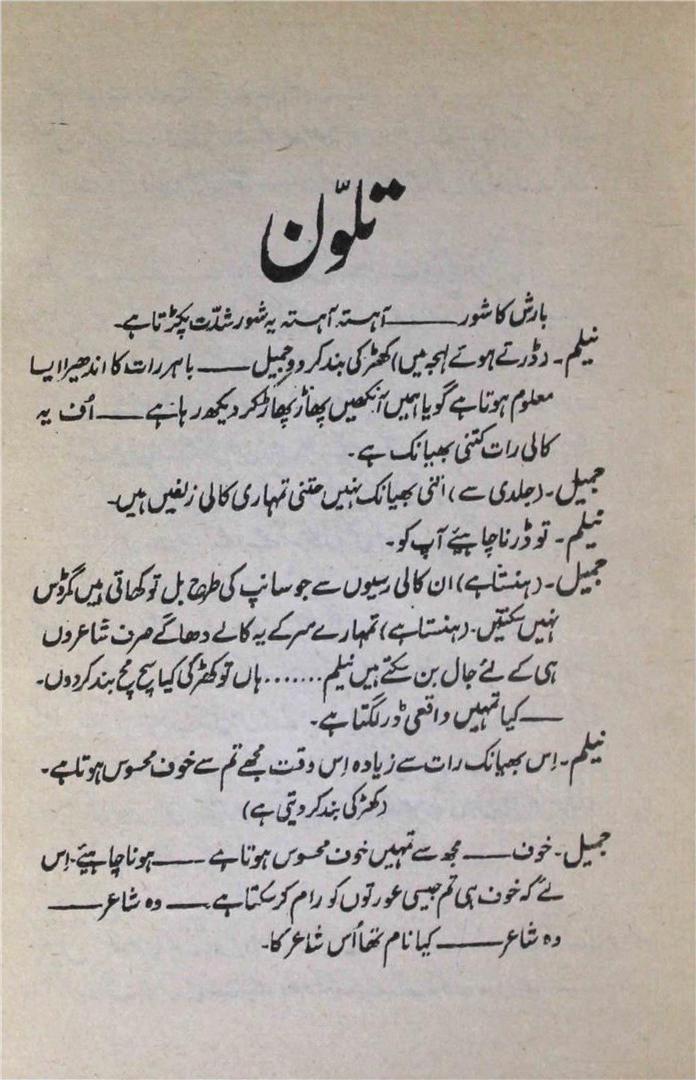 تلوّن
بارش کا شور ــــــ آہستہ آہستہ یہ شور شدّت پکڑتا ہے۔
نیلم۔ (ڈرتے ہوئے لہجہ میں) کھڑکی بند کر دو جمیل ــــــ باہر رات کا اندھیرا ایسا
معلوم ہوتا ہے گویا ہمیں آنکھیں پھاڑ پھاڑ کر دیکھ رہا ہے ــــــ اُف یہ
کالی رات کتنی بھیانک ہے۔
جمیل۔ (جلدی سے) اتنی بھیانک نہیں جتنی تمہاری کالی زلفیں ہیں۔
نیلم۔ تو ڈرنا چاہیئے آپ کو۔
جمیل۔ (ہنستا ہے) ان کالی رسیوں سے جو سانپ کی طرح بل تو کھاتی ہیں مگر ڈس
نہیں سکتیں۔ (ہنستا ہے) تمہارے سر کے یہ کالے دھاگے صرف شاعروں
ہی کے لئے جال بن سکتے ہیں نیلم ....... ہاں تو کھڑکی کیا سچ مچ بند کر دوں۔
ــــــ کیا تمہیں واقعی ڈر لگتا ہے۔
نیلم۔ اِس بھیانک رات سے زیادہ اِس وقت مجھے تم سے خوف محسوس ہوتا ہے۔
(کھڑکی بند کر دیتی ہے)
جمیل۔ خوف ــــــ مجھ سے تمہیں خوف محسوس ہوتا ہے ــــــ ہونا چاہیئے۔ اِس
لئے کہ خوف ہی تم جیسی عورتوں کو رام کر سکتا ہے ــــــ وہ شاعر ــــــ
وہ شاعر ــــــ کیا نام تھا اُس شاعر کا۔